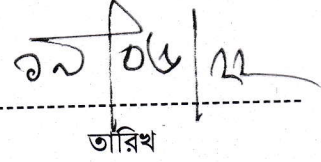 ১৯/০৬/২২
তারিখ